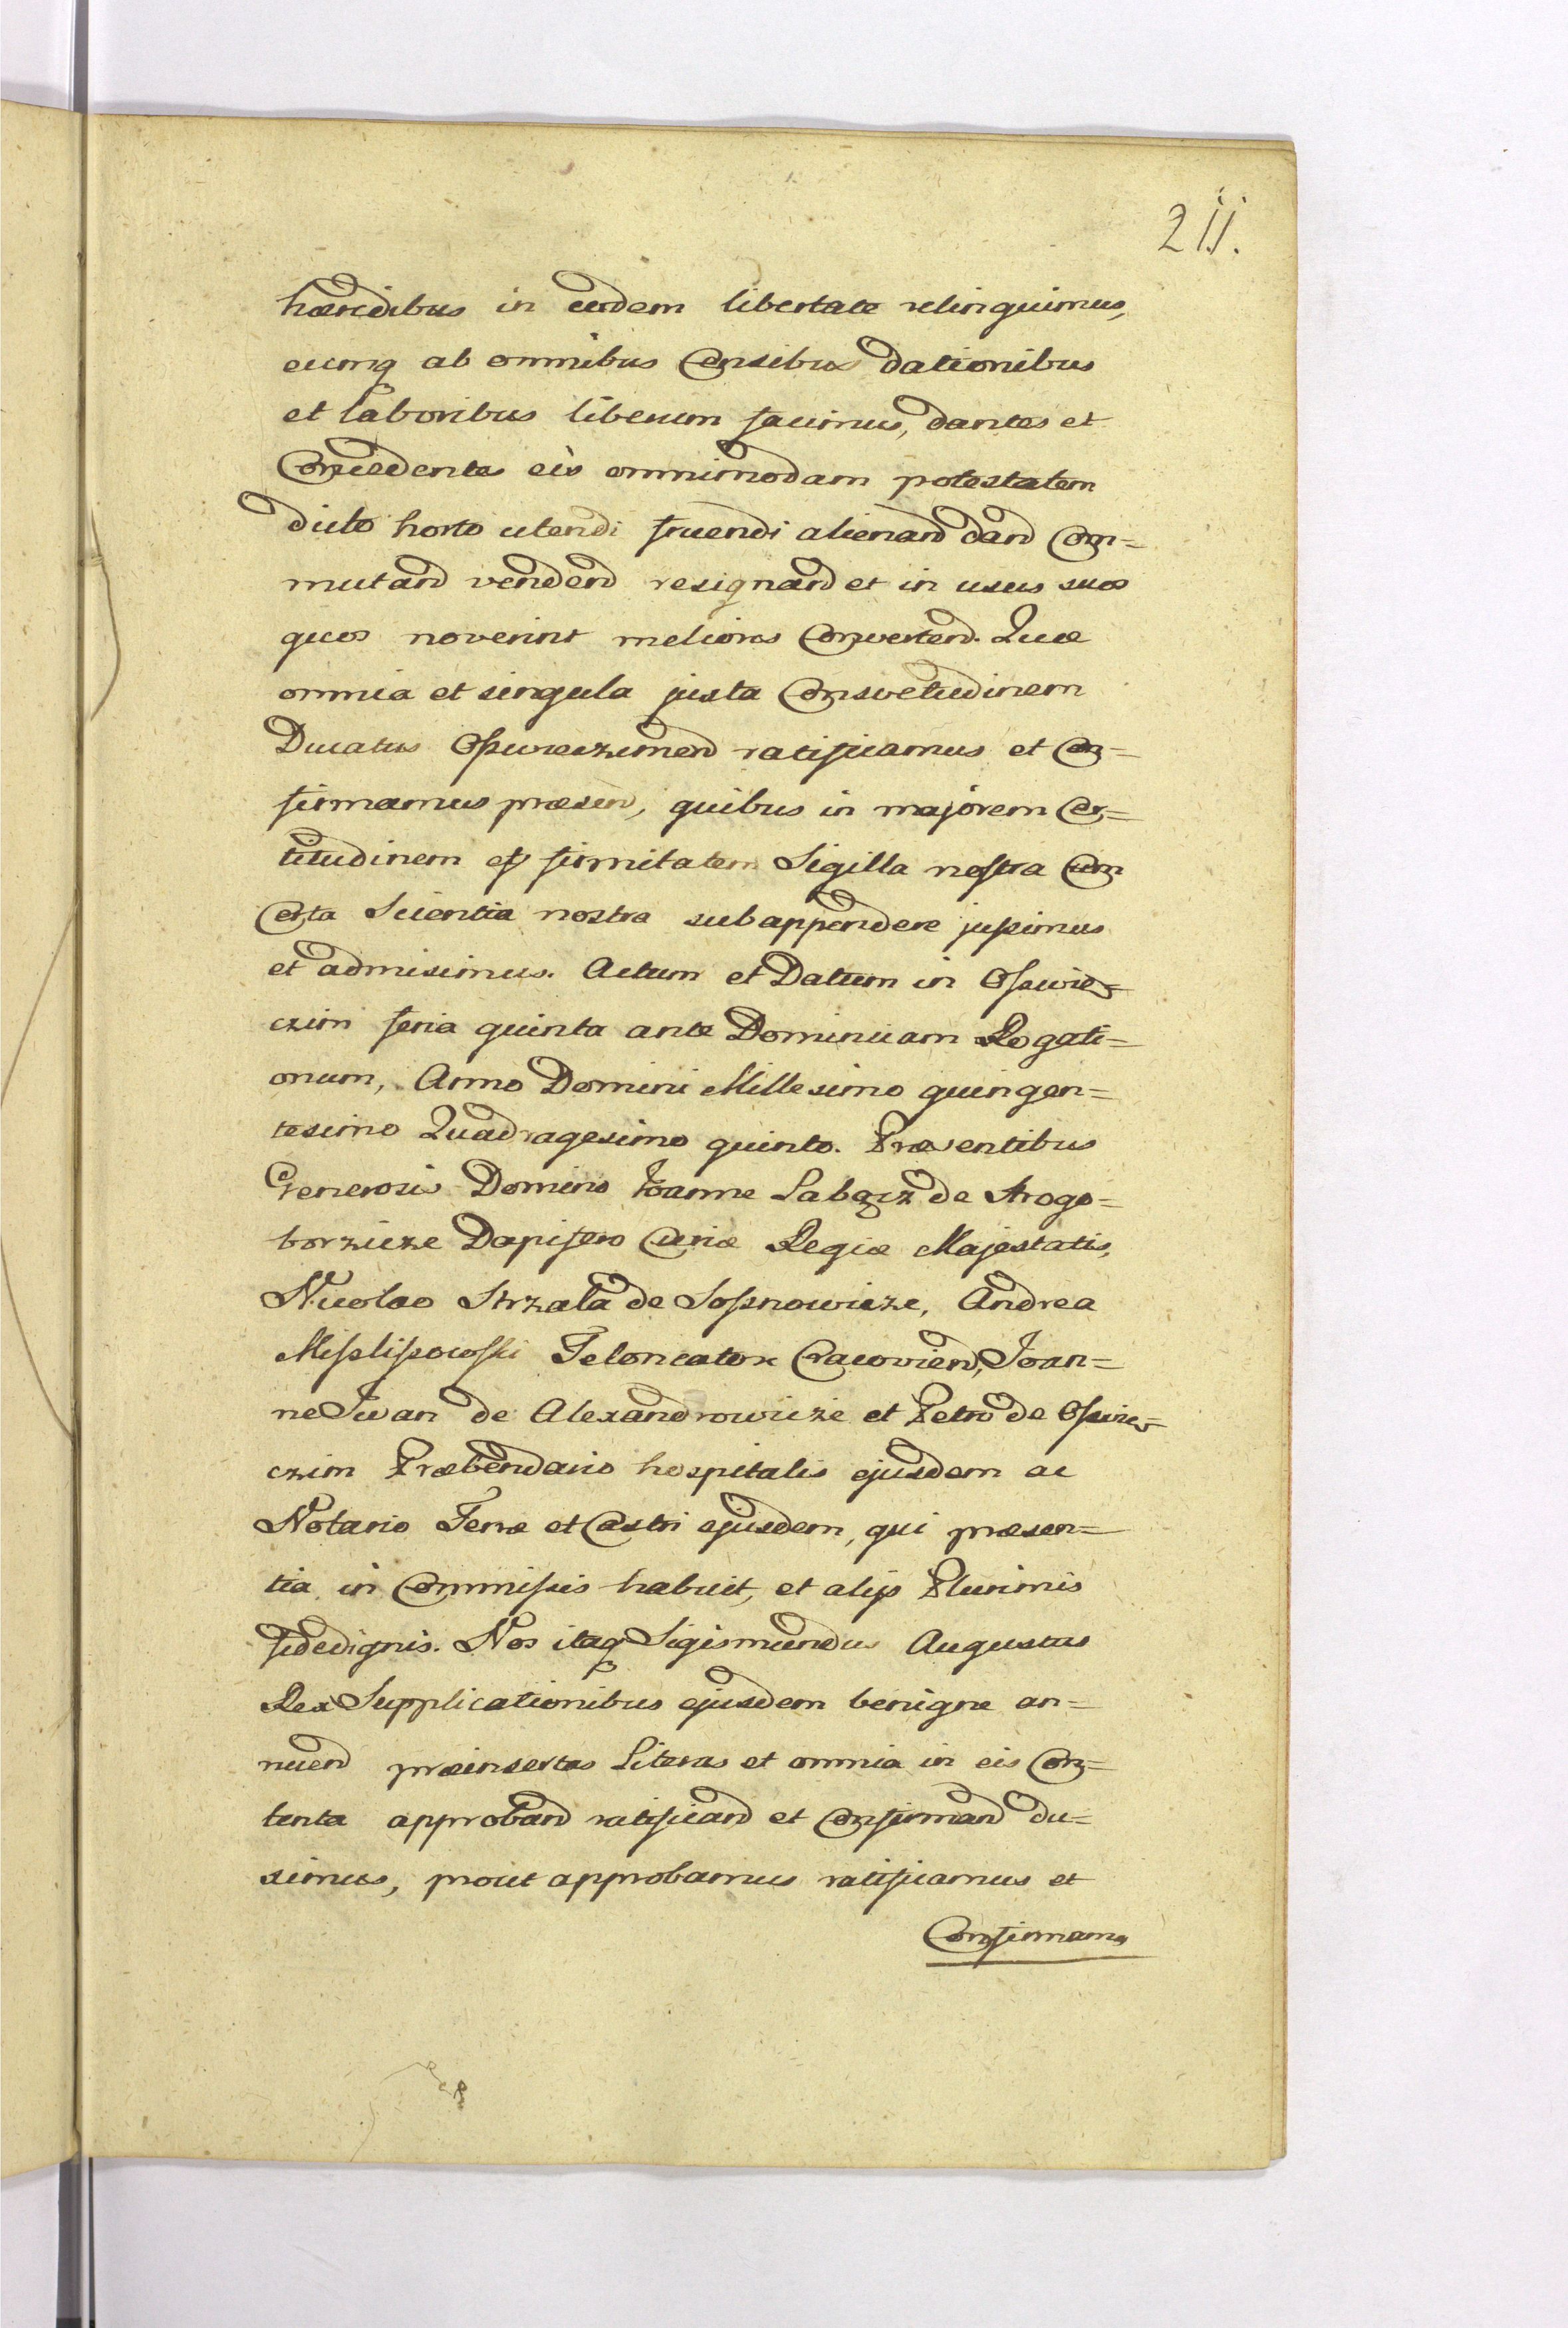 211.
hæredibus in eadem libertate relinquimus,
eumq ab omnibus Censibus dationibus
et laboribus liberum facimus, dantes et
Concedentes eis omnimodam potestatem
dicto horto utendi fruendi alienand dand Com=
mutand vendend resignand et in usus suos
quos noverint meliores Convertend. Quæ
omnia et singula juxta Consvetudinem
Ducatus Osswieczimen ratificamus et Con=
firmamus præsen, quibus in majorem Cer=
titudinem et firmitatem Sigilla nostra cum
Certa Scientia nostra subappendere jussimus
et admisimus. Actum et Datum in Osswie=
czim feria quinta ante Dominicam Rogati=
onum, Anno Domini Millesimo quingen=
tesimo Quadragesimo quinto. Præsentibus
Generosis Domino Joanne Sabocz de Strogo=
borzicze Dapifero Curiæ Regiæ Majestatis,
Nicolao Strzala de Sossnowicze, Andrea
Misslissowski Teloneatore Cracovien, Joan=
ne Iwan de Alexandrowicze et Petro de Osswie=
czim Præbendario hospitalis ejusdem ac
Notario Terræ et Castri ejusdem, qui præsen=
tia in Commissis habuit, et alijs Plurimis
fidedignis. Nos itaq Sigismundus Augustus
Rex Supplicationibus ejusdem benigne an=
nuend præinsertas Literas et omnia in eis Con=
tenta approband ratificand et Confirmand du=
ximus, prout approbamus ratificamus et
Confirmamus